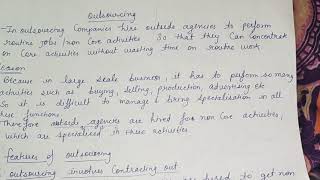 Outsourcing
- In outsourcing Companies hire outside agencies to perform
routine jobs / non core activities so that they Can Concentrate
on Core activities without wasting time on routine work.
Reason
Because in large scale business, it has to perform so many
activities such as buying, selling, production, advertising etc
So it is difficult to manage & bring specialisation in all
functions.
Therefore outside agencies are hired for non Core activities,
which are specialised in these activities.
features of outsourcing
outsourcing involves Contracting out
hired to get non